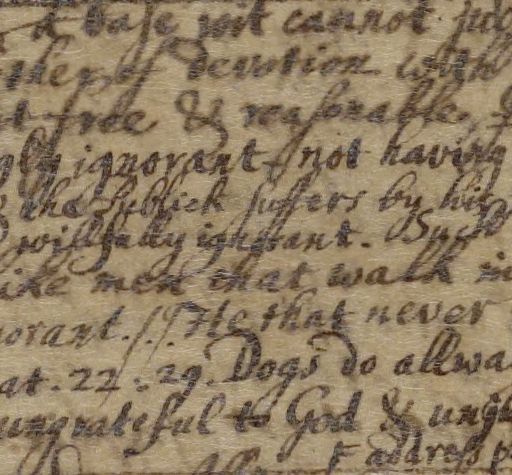 a base wit cannot
of devotion with
free & reasonable,
ignorant, not having
the Publick suffers by his
willfully ignorant. Such
like men that walk in
norant. // He that never
at. 22 : 29. Dogs do allwa
ungrateful to God & unju
address